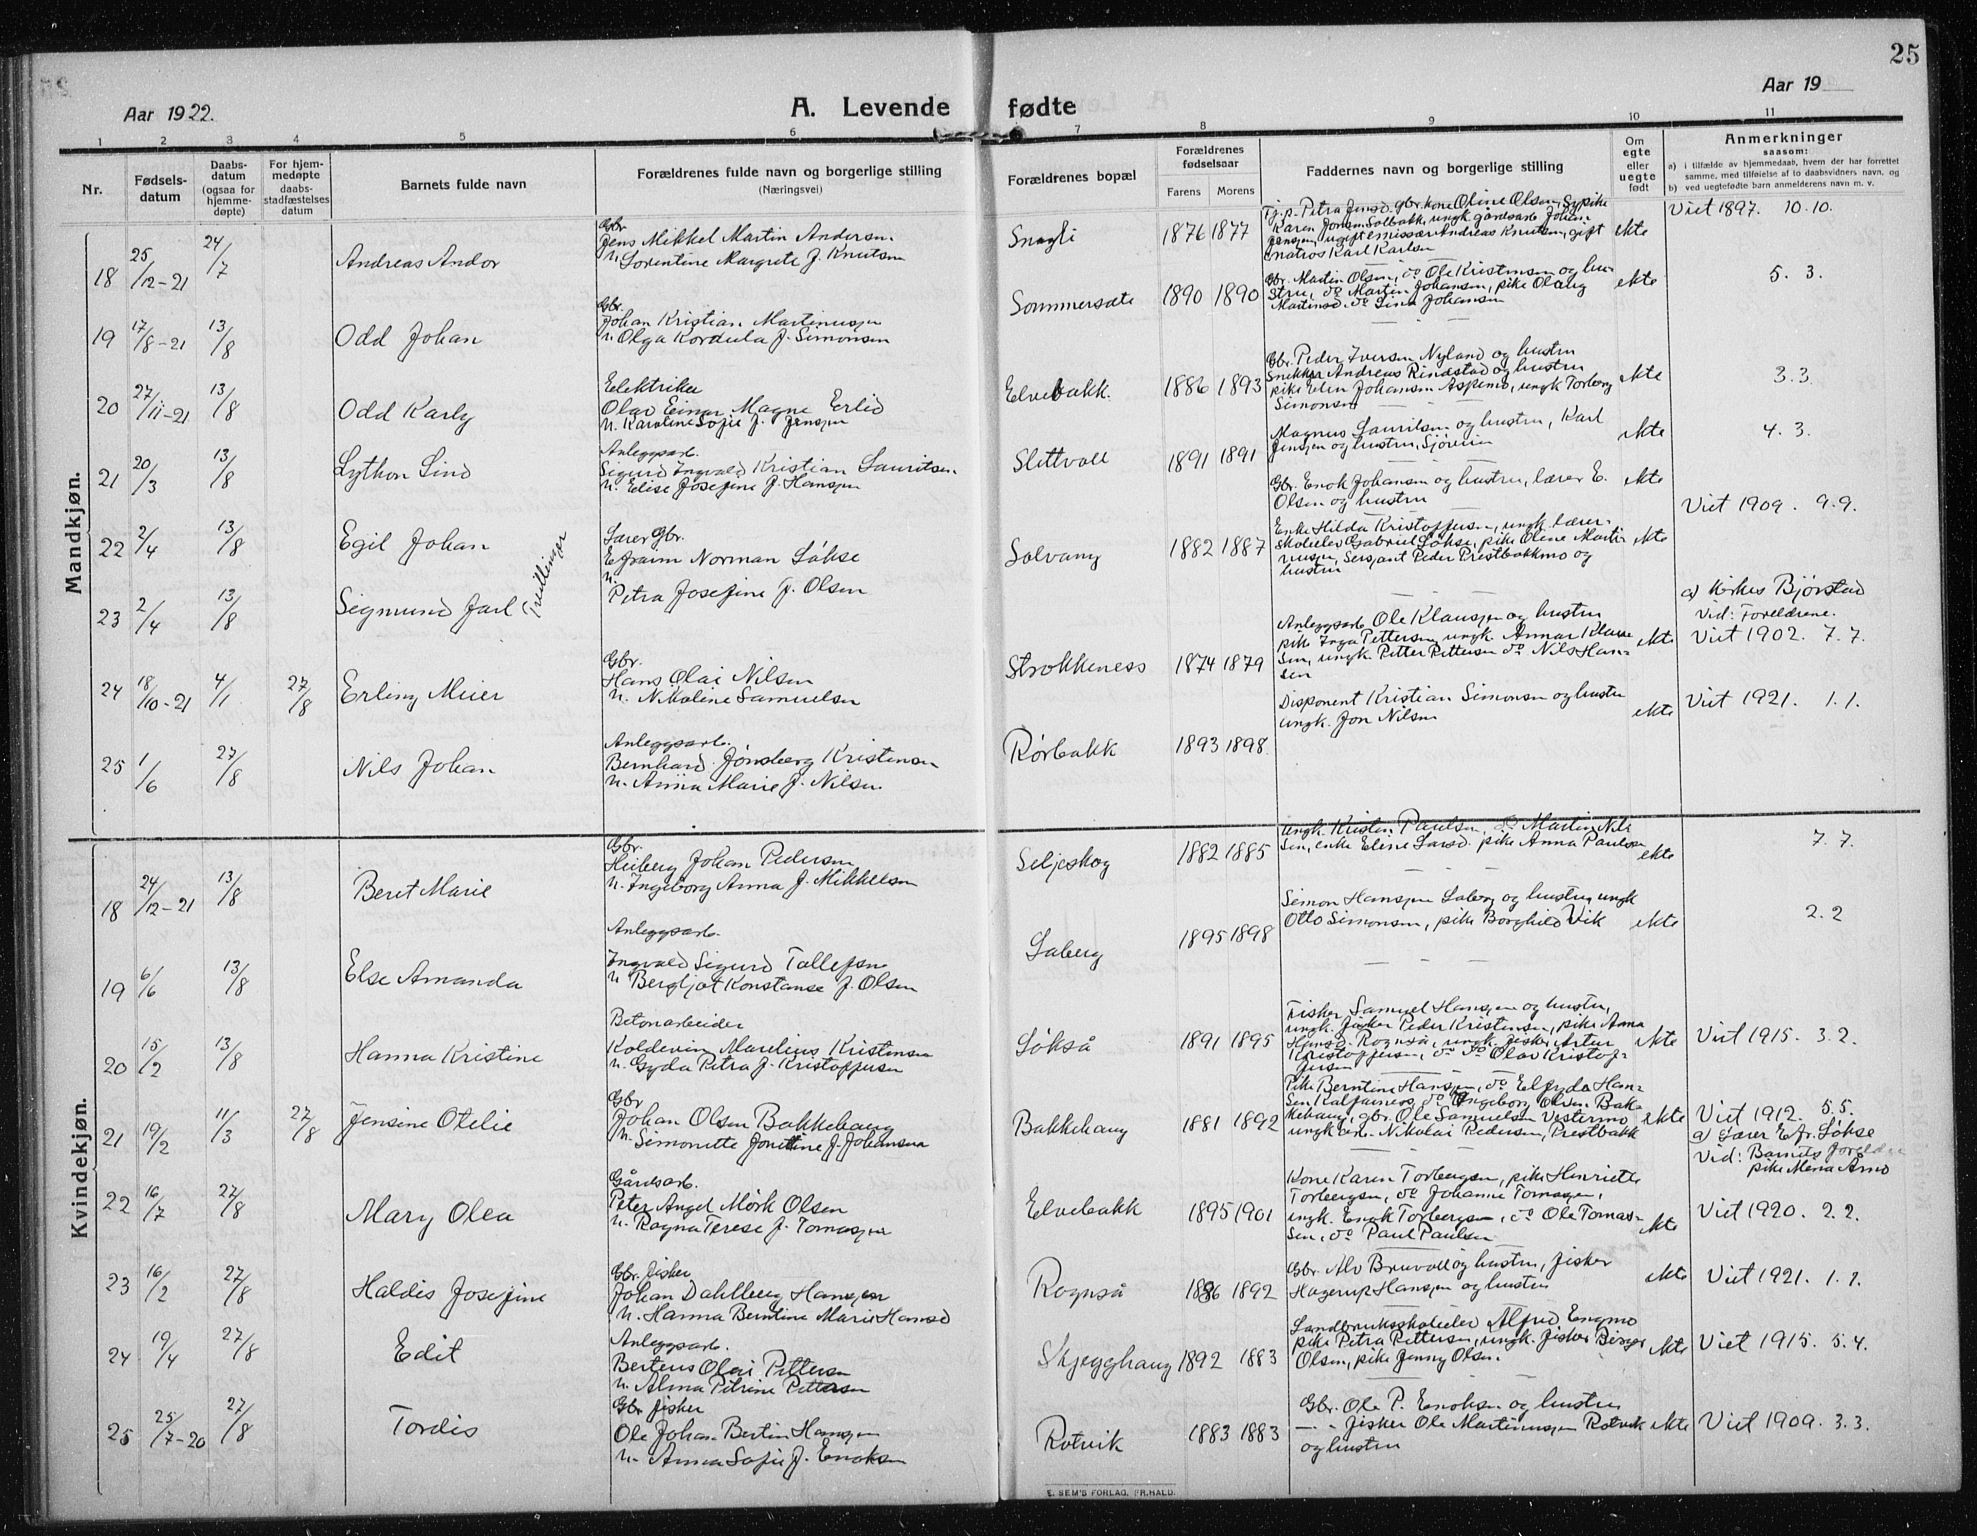 25
Aar 1922.
A. Levende fødte
Aar 19
1 2 3 4 5 6 7 8 9 10 11
Nr.
Fødsels-
datum
Daabs-
datum
(ogsaa for
hjemme-
døpte)
For hjem-
medøpte
daabs-
stadfæstelses
datum
Barnets fulde navn
Forældrenes fulde navn og borgerlige stilling
(Næringsvei)
Forældrenes bopæl
Forældrenes
fødselsaar
Farens Morens
Faddernes navn og borgerlige stilling
Om
egte
eller
uegte
født
Anmerkninger
saasom:
a) i tilfælde av hjemmedaab, hvem der har forrettet
samme, med tilføielse af to daabsvidners navn, og
b) ved uegtefødte barn anmelderens navn m. v.
Mandkjøn.
18 25/12-21 24/7 Andreas Andor
Gbr
Jens Mikkel Martin Andersen
u. Lorentine Margrete f. Knutsen
Snøgli 1876 1877
Tj.p. Petra Jensd. gbr. kone Oline Olsen, Sypike
Karen Jonsen Solbakk, ungk. gårdsarb. Johan
Jensen, ugift emissær Andreas Knutsen, gift
matros Karl Karlsen
ekte Viet 1897. 10.10.
19 17/8-21 13/8 Odd Johan
Gbr.
Johan Kristian Martinussen
u. Olga Kordula f. Simonsen
Sommersæte 1890 1890
Gbr. Martin Olsen, do Ole Kristensen og hu-
stru, do Martin Johansen, pike Olaug
Martinsd. do Lina Johansen
ekte 5. 3.
20 27/11-21 13/8 Odd Karly
Elektriker
Olav Einar Magne Erlid
u. Karoline Sofie f. Jensen
Elvebakk. 1886 1893
Gbr. Peder Iversen Nyland og hustru
Snekker Andreas Rindstad og hustru
pike Elen Johansen Aspenes, ungk Torberg
Simonsen
ekte 3.3.
21 20/3 13/8 Lython Lind
Anleggsarb.
Sigurd Ingvald Kristian Lauritsen
u. Elise Josefine f. Hansen
Slettvoll 1891 1891
Magnus Lauritsen og hustru, Karl
Jensen og hustru, Sjøveien
ekte 4. 3.
22 2/4 13/8 Egil Johan
Lærer Gbr.
Efraim Norman Løkse
u.
Petra Josefine f. Olsen
Solvang 1882 1887
Gbr. Enok Johansen og hustru, lærer E.
Olsen og hustru
ekte Viet 1909. 9.9.
23 2/4 13/8 Sigmund Jarl
Tvillinger
Enke Hilda Kristoffersen, ungk. lærer-
skoleelev Gabriel Løkse, pike Olene Marti-
nusen, Sersjant Peder Prestbakkmo og
hustru
ekte
24 18/10-21 4/1 27/8 Erling Meier
Gbr.
Hans Olai Nilsen
u. Nikoline Samuelsen
Strokkeness 1874 1879
Anleggsarb. Ole Klausen og hustru
pike Inga Pettersen, ungk. Annar Klau-
sen, ungk. Petter Pettersen do Nils Han-
sen
ekte
a) Kirkes. Bjørstad
Vid: Foreldrene.
Viet 1902. 7.7.
25 1/6 27/8 Nils Johan
Anleggsarb.
Bernhard Jønsberg Kristensen
u. Anna Marie f. Nilsen
Rørbakk 1893 1898.
Disponent Kristian Simonsen og hustru
ungk. Jon Nilsen
ekte Viet 1921. 1.1.
Kvindekjøn.
18 24/12-21 13/8 Beret Marie
Gbr.
Heiberg Johan Pedersen
u. Ingeborg Anna f. Mikkelsen
Seljeskog 1882 1885
ungk. Kristen Paulsen, do Martin Nil-
sen, enke Eline Larsd. pike Anna Paulsen
ekte 7.7.
19 6/6 13/8 Else Amanda
Anleggsarb.
Ingvald Sigurd Tollefsen
u. Bergljot Konstanse f. Olsen
Laberg 1895 1898
Simon Hansen Laberg og hustru, ungk
Otto Simonsen, pike Borghild Vik
ekte 2.2
20 15/2 13/8 Hanna Kristine
Betonarbeider
Koldevin Marelius Kristensen
u. Gyda Petra f. Kristoffersen
Løkså 1891 1895
Fisker Samuel Hansen og hustru,
ungk. fisker Peder Kristensen, pike Anna
Hansd. Rognså, ungk. fisker Artur
Kristoffersen, do do Olav Kristof-
fersen
ekte Viet 1915. 3.2.
21 19/2 11/3 27/8 Jensine Otelie
Gbr
Johan Olsen Bakkehaug
u. Simonette Jonettine f. Johansen
Bakkehaug 1881 1892
Pike Berntine Hansen, do Elfrida Han-
sen Kalfarnes, do Ingeborg Olsen Bak-
kehaug, gbr. Ole Samuelsen Vestermo
ungk em. Nikolai Pedersen, Prestbakk
ekte Viet 1912. 5.5.
a) Lærer Efr. Løkse
Vid: Barnets foreldre
pike Meria Arno
22 16/7 27/8 Mary Olea
Gårdsarb.
Peter Angel Mörk Olsen
u. Ragna Terese f. Tomassen
Elvebakk 1895 1901
Kone Karen Torbergsen, pike Henriette
Torbergsen, do Johanne Tomassen,
ungk. Enok Torbergsen, do Ole Tomas-
sen, do Paul Paulsen
ekte Viet 1920. 2.2.
23 16/2 27/8 Haldis Josefine
Gbr. fisker
Johan Dahlberg Hansen
u. Hanna Berntine Marie Hansd
Rognså 1886 1892
Gbr. Alv Bruvoll og hustru, fisker
Hagerup Hansen og hustru
ekte Viet 1921. 1.1.
24 19/4 27/8 Edit
Anleggsarb.
Berteus Olai Pettersen
u. Alma Petrine Pettersen
Skjegghaug 1892 1883
Landbruksskoleelev Alfred Engmo
pike Petra Pettersen, ungk. fisker Birger
Olsen, pike Jenny Olsen.
ekte Viet 1915. 5.4.
25 25/7-20 27/8 Tordis
Gbr fisker
Ole Johan Bertin Hansen
u. Anna Sofie f. Enoksen
Rotvik 1883 1883
Gbr. Ole P. Enoksen og hustru
— - fisker Ole Martinussen Rotvik
og hustru
ekte Viet 1909. 3.3.
E. SEM'S FORLAG, FR.HALD.